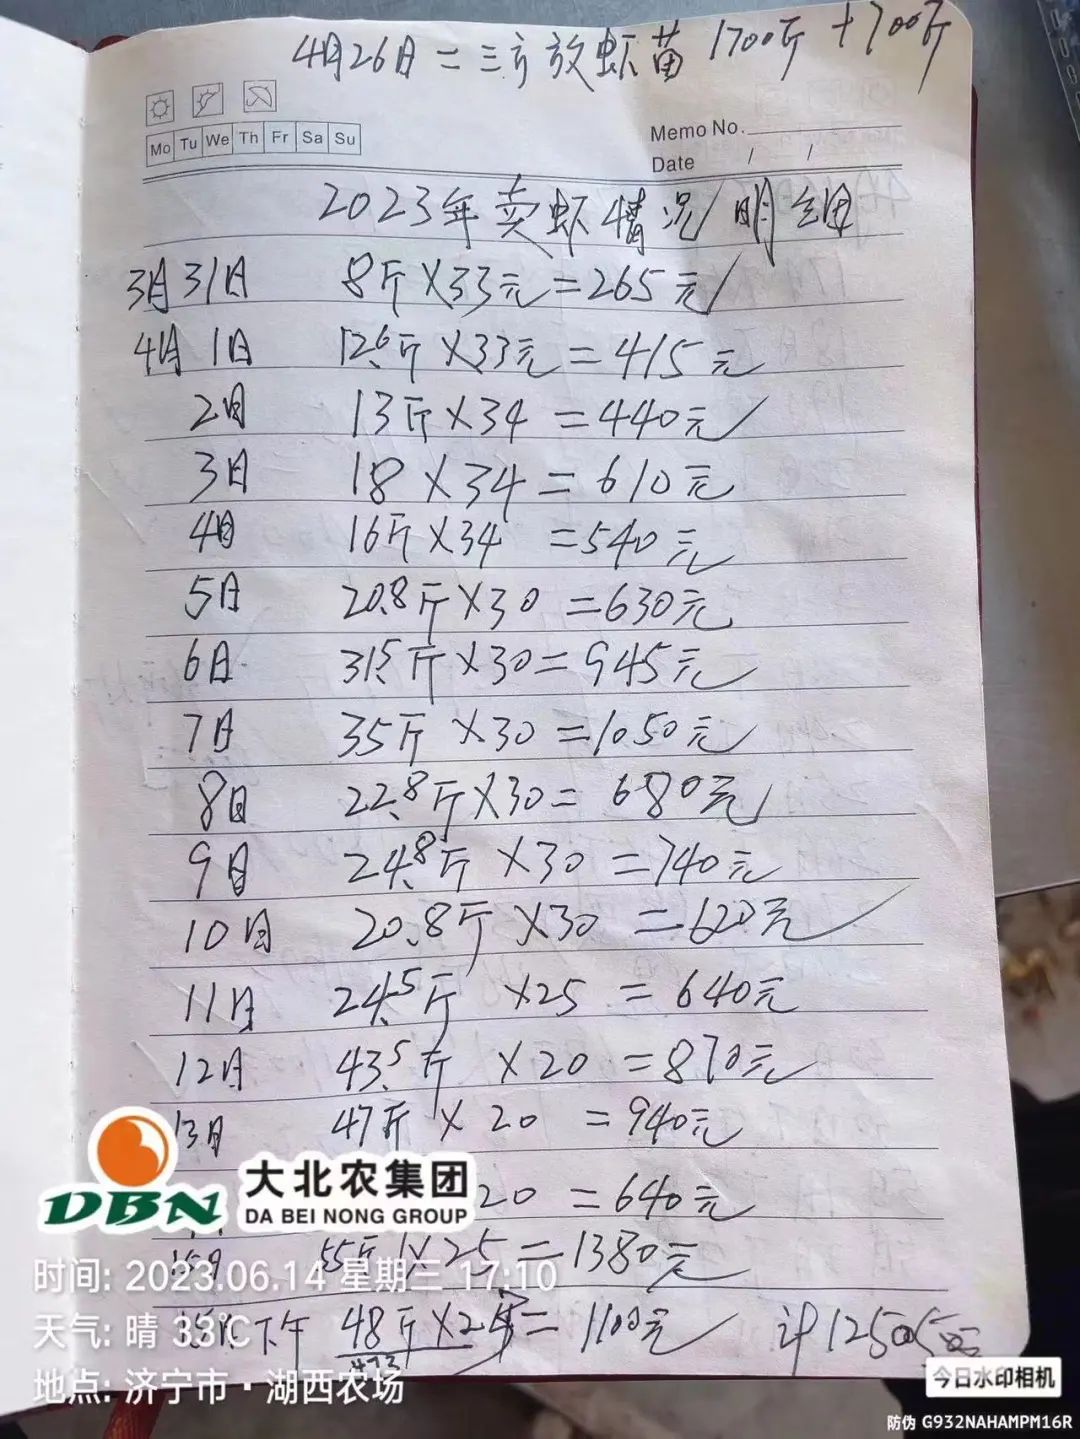 4月26日 = 三方放虾苗 1700斤 + 700斤
Mo Tu We Th Fr Sa Su
Memo No.
Date / /
2023年卖虾情况/明细
3月31日 8斤×33元=265元
4月1日 12.6斤×33元=415元
2日 13斤×34 =440元
3日 18×34=610元
4日 16斤×34 =540元
5日 20.8斤×30 =630元
6日 31.5斤×30=945元
7日 35斤×30=1050元
8日 22.8斤×30= 680元
9日 24.8斤×30 =740元
10日 20.8斤×30 =620元
11日 24.5斤 ×25 =640元
12日 43.5斤 ×20 =870元
13日 47斤×20 =940元
20 =640元
15日 55斤×25=1380元
下午 48斤×2 =1100元 计12505元
473
DBN 大北农集团
DA BEI NONG GROUP
时间: 2023.06.14 星期三 17:10
天气: 晴 33℃
地点: 济宁市·湖西农场
今日水印相机
防伪 G932NAHAMPM16R